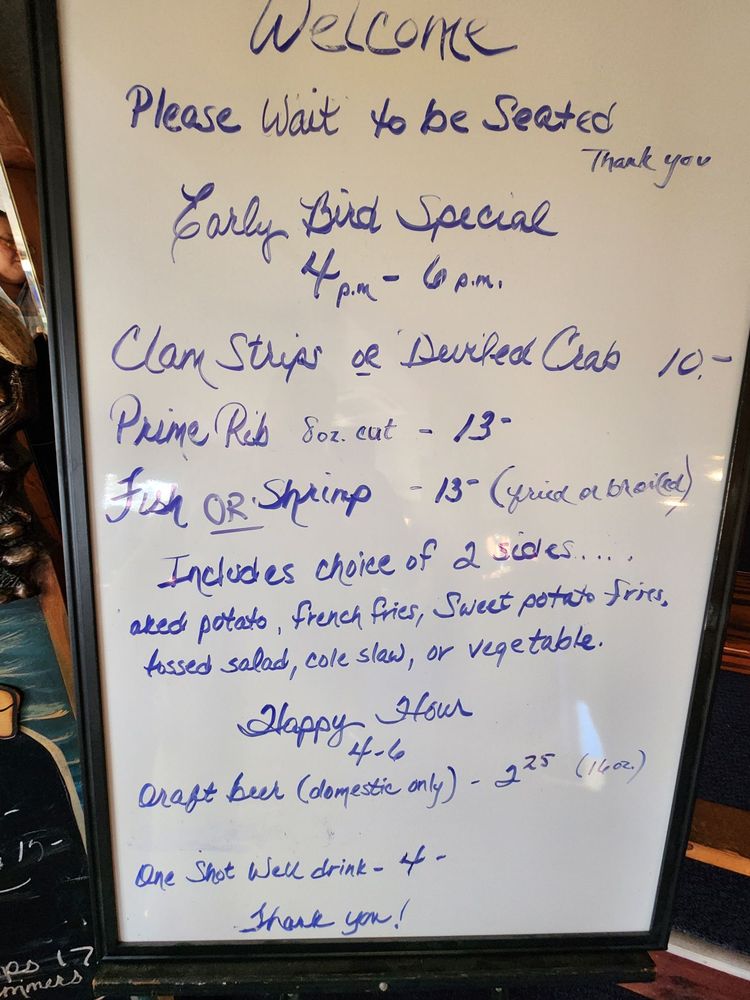 Welcome
Please Wait to be Seated
Thank you
Early Bird Special
4 p.m - 6 p.m.
Clam Strips or Deviled Crab 10.-
Prime Rib 8oz. cut - 13-
Fish OR Shrimp - 13- (fried or broiled)
Includes choice of 2 sides....
aked potato, french fries, Sweet potato fries,
tossed salad, cole slaw, or vegetable.
Happy Hour
4-6
Draft beer (domestic only) - 2 25 (16oz.)
One Shot Well drink - 4 -
Thank you!
15-
ps 17
mmers